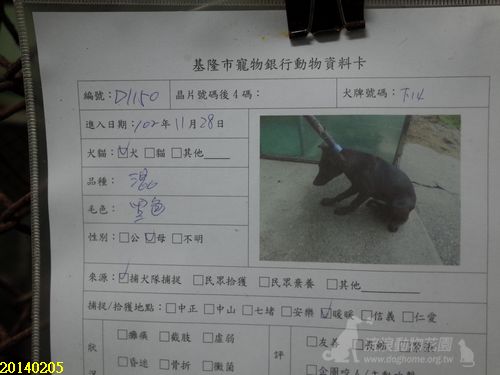 基隆市寵物銀行動物資料卡
編號：D1150 晶片號碼後4碼： 犬牌號碼：下14
進入日期：102年11月28日
犬貓：☑犬 □貓 □其他
品種：混
毛色：黑色
性別：□公 ☑母 □不明
來源：☑捕犬隊捕捉 □民眾拾獲 □民眾棄養 □其他
捕捉/拾獲地點：□中正 □中山 □七堵 □安樂 ☑暖暖 □信義 □仁愛
狀況 □癱瘓 □截肢 □虛弱 評 □友善
□昏迷 □骨折 □黴菌 □會咬人/主動攻擊
www.doghome.org.tw
20140205